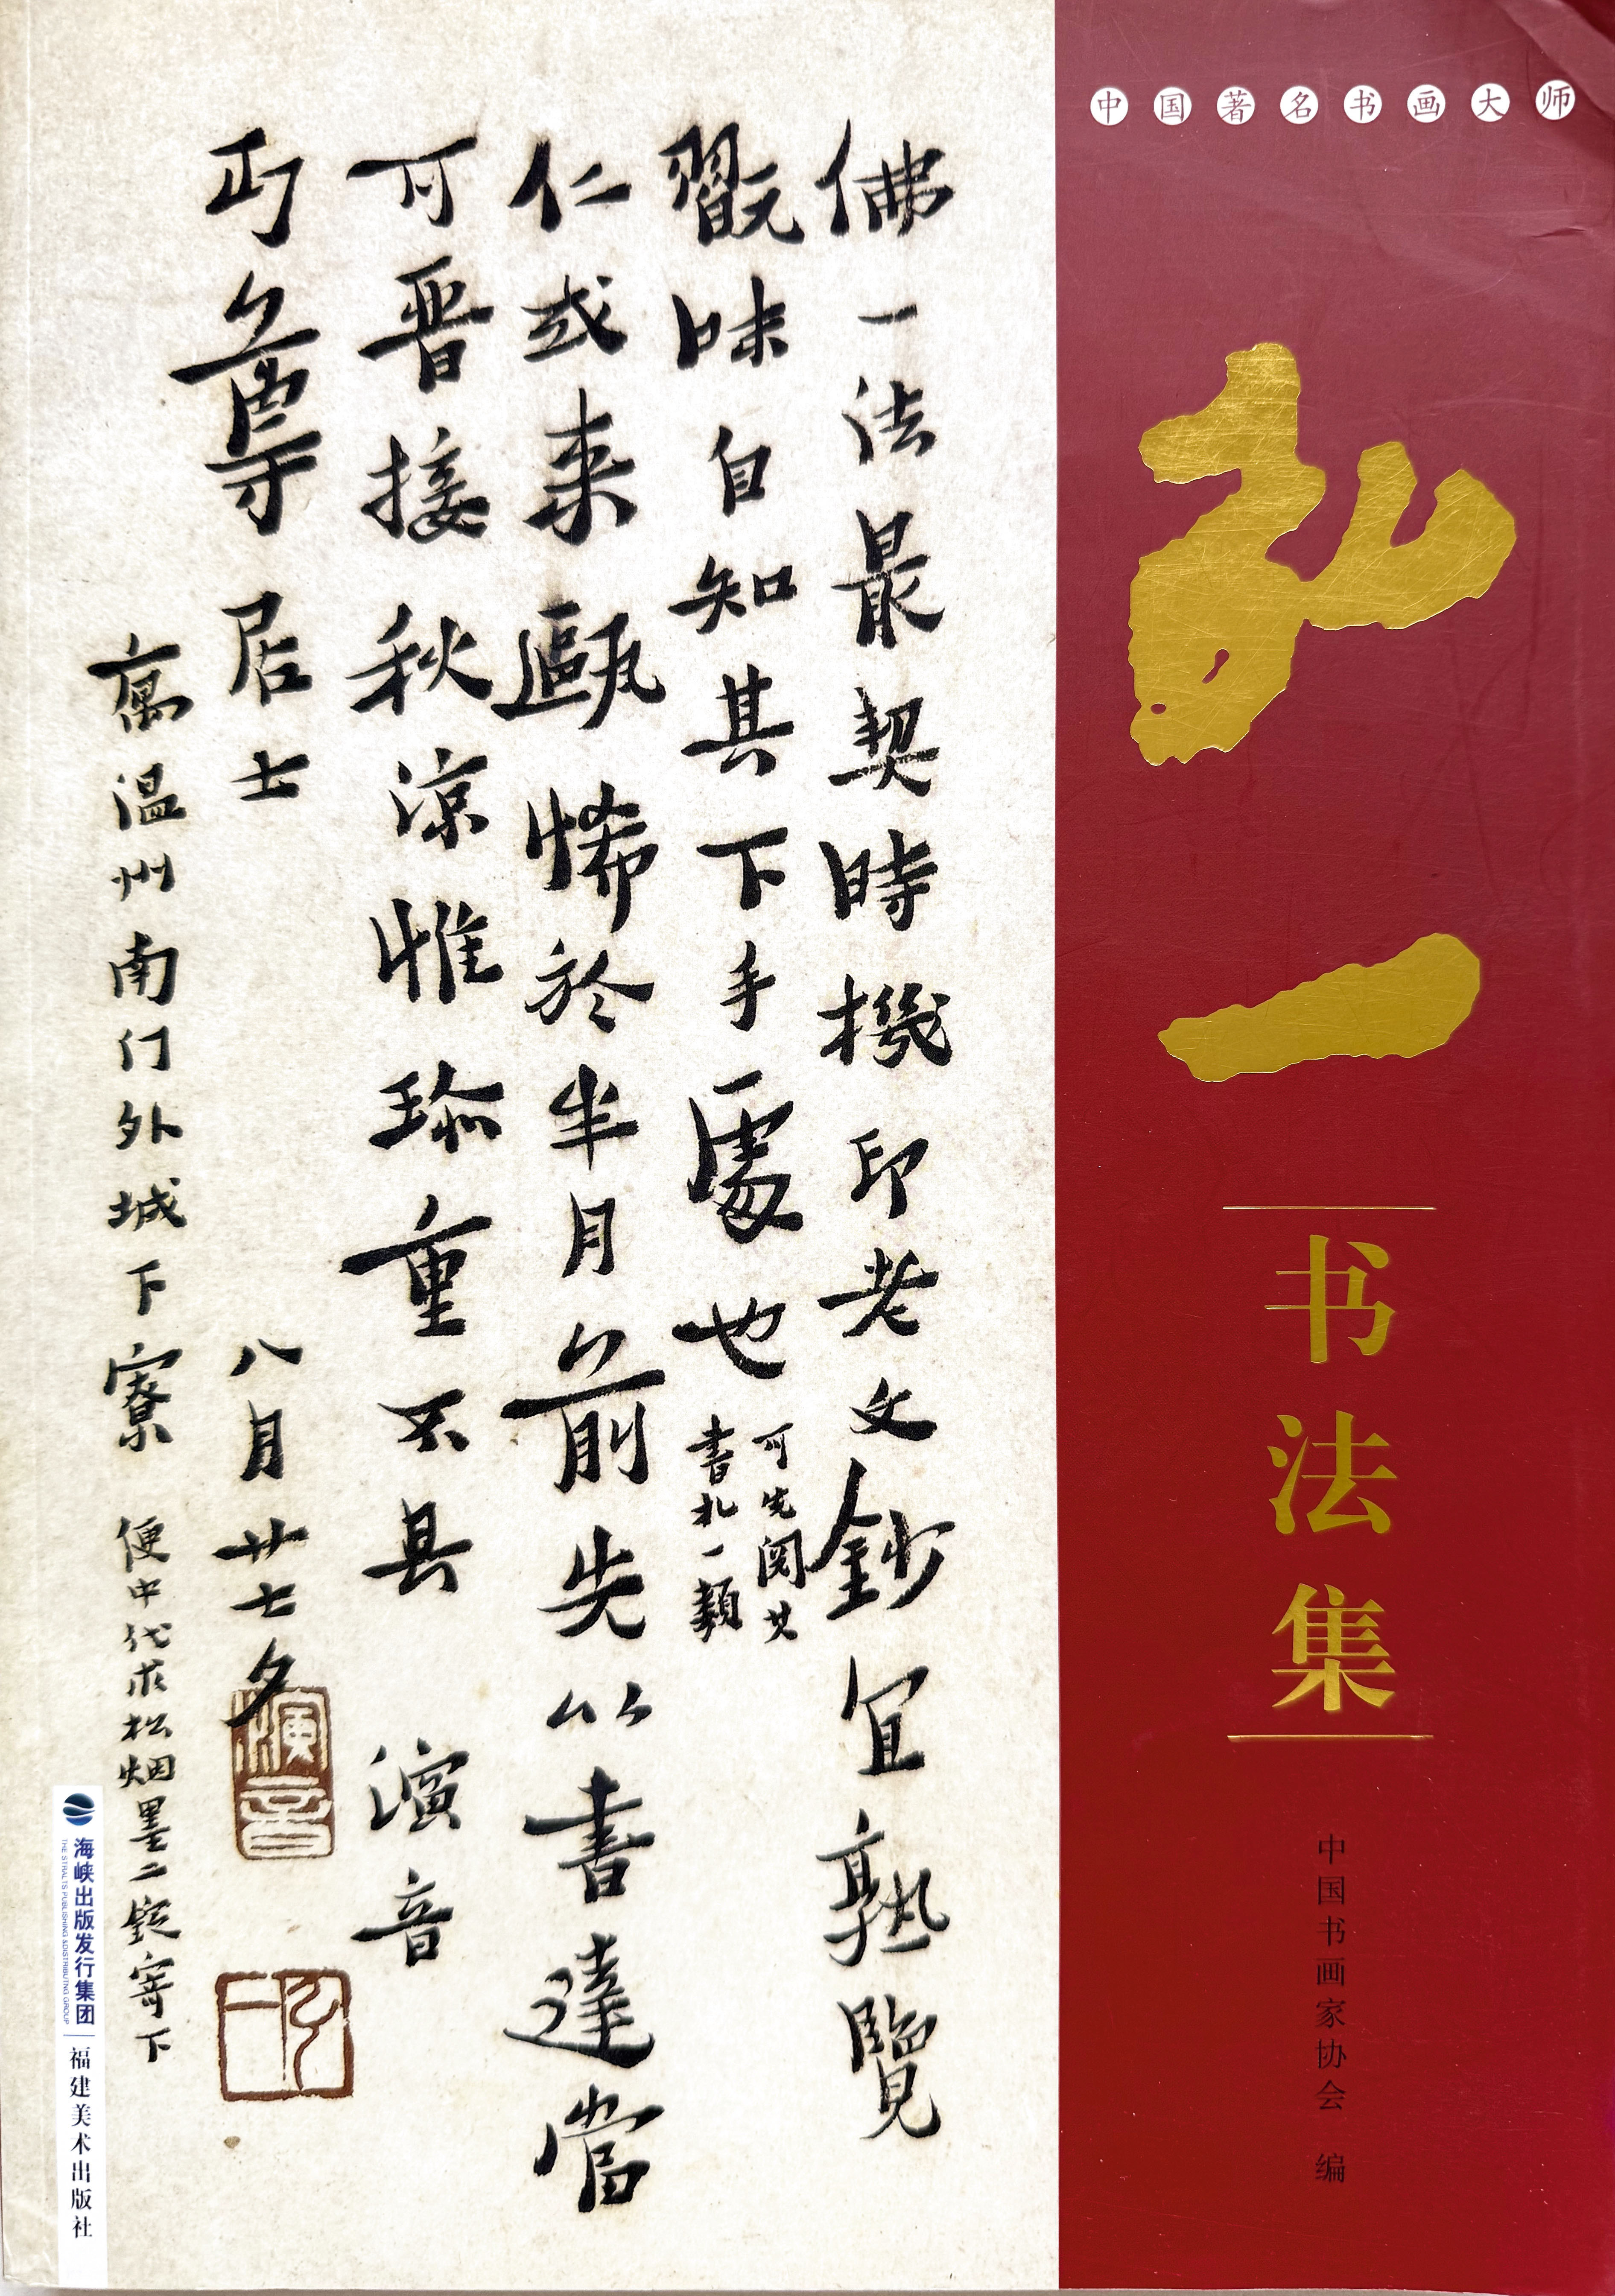 中国著名书画大师
弘一
书法集
中国书画家协会 编
佛一法最契時機印老文鈔宜熟覽
翫味自知其下手處也可先阅其
書札一類
仁或来甌悕於半月前先以書達當
可晋接秋凉惟珎重不具 演音
丏尊居士 八月廿七夕
寓温州南门外城下寮 便中代求松烟墨二錠寄下
演音
弘一
海峡出版发行集团
THE STRAITS PUBLISHING & DISTRIBUTING GROUP
福建美术出版社